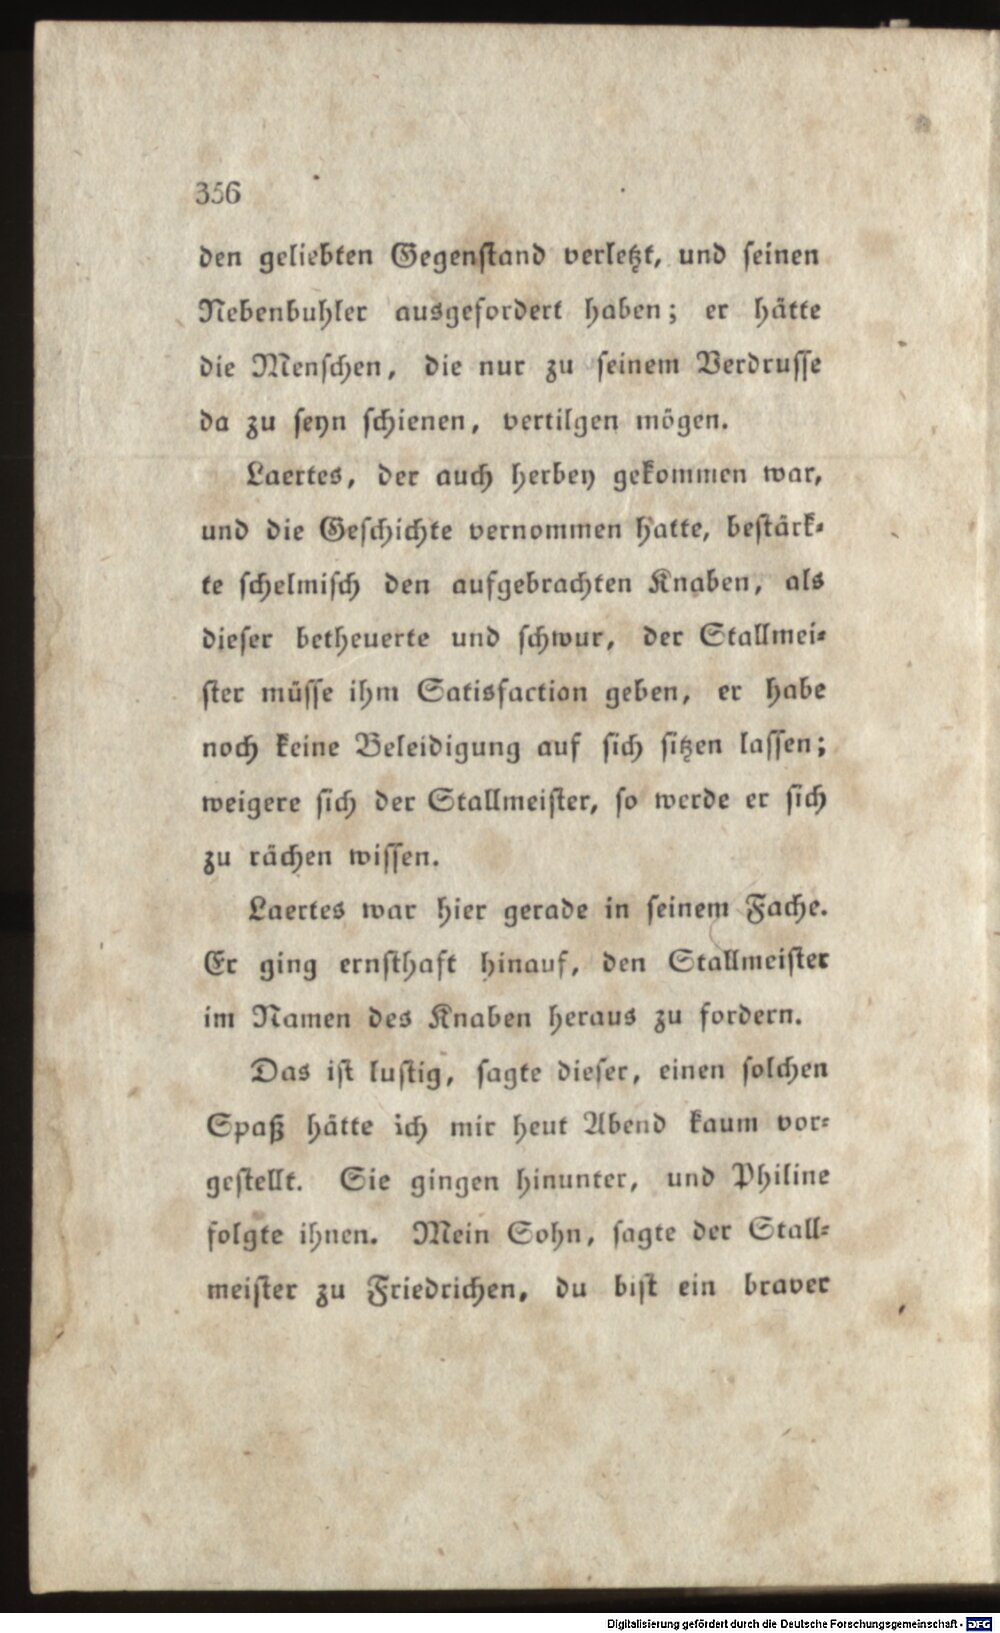 356
den geliebten Gegenstand verletzt, und seinen
Nebenbuhler ausgefordert haben; er hätte
die Menschen, die nur zu seinem Verdrusse
da zu seyn schienen, vertilgen mögen.
Laertes, der auch herbey gekommen war,
und die Geschichte vernommen hatte, bestärk-
te schelmisch den aufgebrachten Knaben, als
dieser betheuerte und schwur, der Stallmei-
ster müsse ihm Satisfaction geben, er habe
noch keine Beleidigung auf sich sitzen lassen;
weigere sich der Stallmeister, so werde er sich
zu rächen wissen.
Laertes war hier gerade in seinem Fache.
Er ging ernsthaft hinauf, den Stallmeister
im Namen des Knaben heraus zu fordern.
Das ist lustig, sagte dieser, einen solchen
Spaß hätte ich mir heut Abend kaum vor-
gestellt. Sie gingen hinunter, und Philine
folgte ihnen. Mein Sohn, sagte der Stall-
meister zu Friedrichen, du bist ein braver
Digitalisierung gefördert durch die Deutsche Forschungsgemeinschaft - DFG